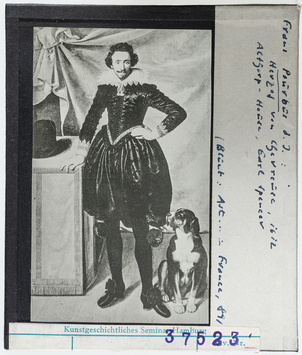 Frans Pourbus d. J. :
Herzog von Chevreuse, 1612
Althorp-House, Earl Spencer
(Blunt: Art... in France, 89)
Kunstgeschichtliches Seminar Hamburg
37523
Inv. Nr.